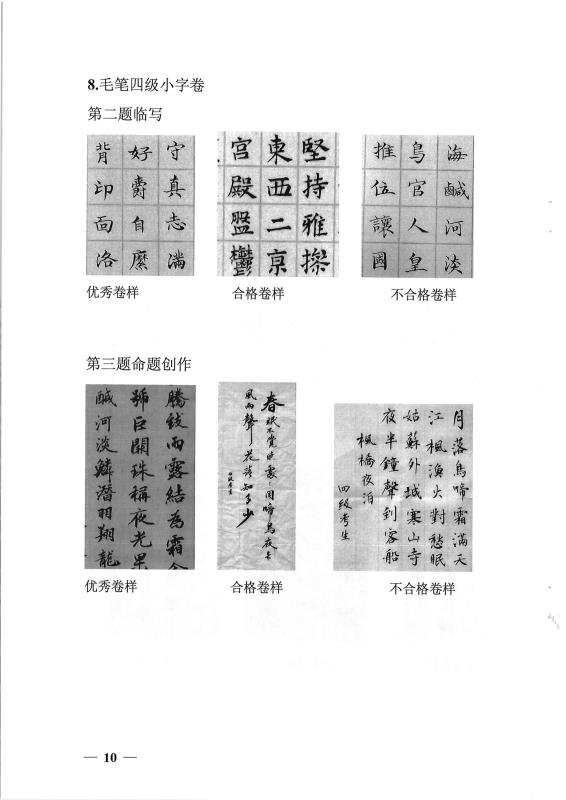 8.毛笔四级小字卷
第二题临写
守真志滿
好爵自縻
背邙面洛
堅持雅操
東西二京
宮殿盤鬱
海鹹河淡
鳥官人皇
推位讓國
优秀卷样
合格卷样
不合格卷样
第三题命题创作
騰致雨露結為霜金
號巨闕珠稱夜光果
鹹河淡鱗潛羽翔龍
春眠不覺曉處〻聞啼鳥夜來
風雨聲花落知多少
四級考生
月落烏啼霜滿天
江楓漁火對愁眠
姑蘇外城寒山寺
夜半鐘聲到客船
楓橋夜泊
四級考生
优秀卷样
合格卷样
不合格卷样
— 10 —